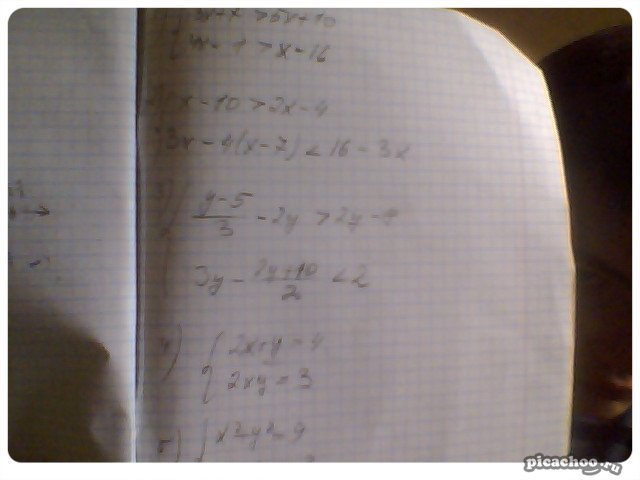 > 5x + 10
- 1 > x - 16
x - 10 > 2x - 4
3x - 4(x - 7) < 16 - 3x
3) { (y - 5)/3 - 2y > 2y -
3y - (y + 10)/2 < 2
4) { 2x + y = 4
2xy = 3
5) { x² - y² = 9
picachoo.ru